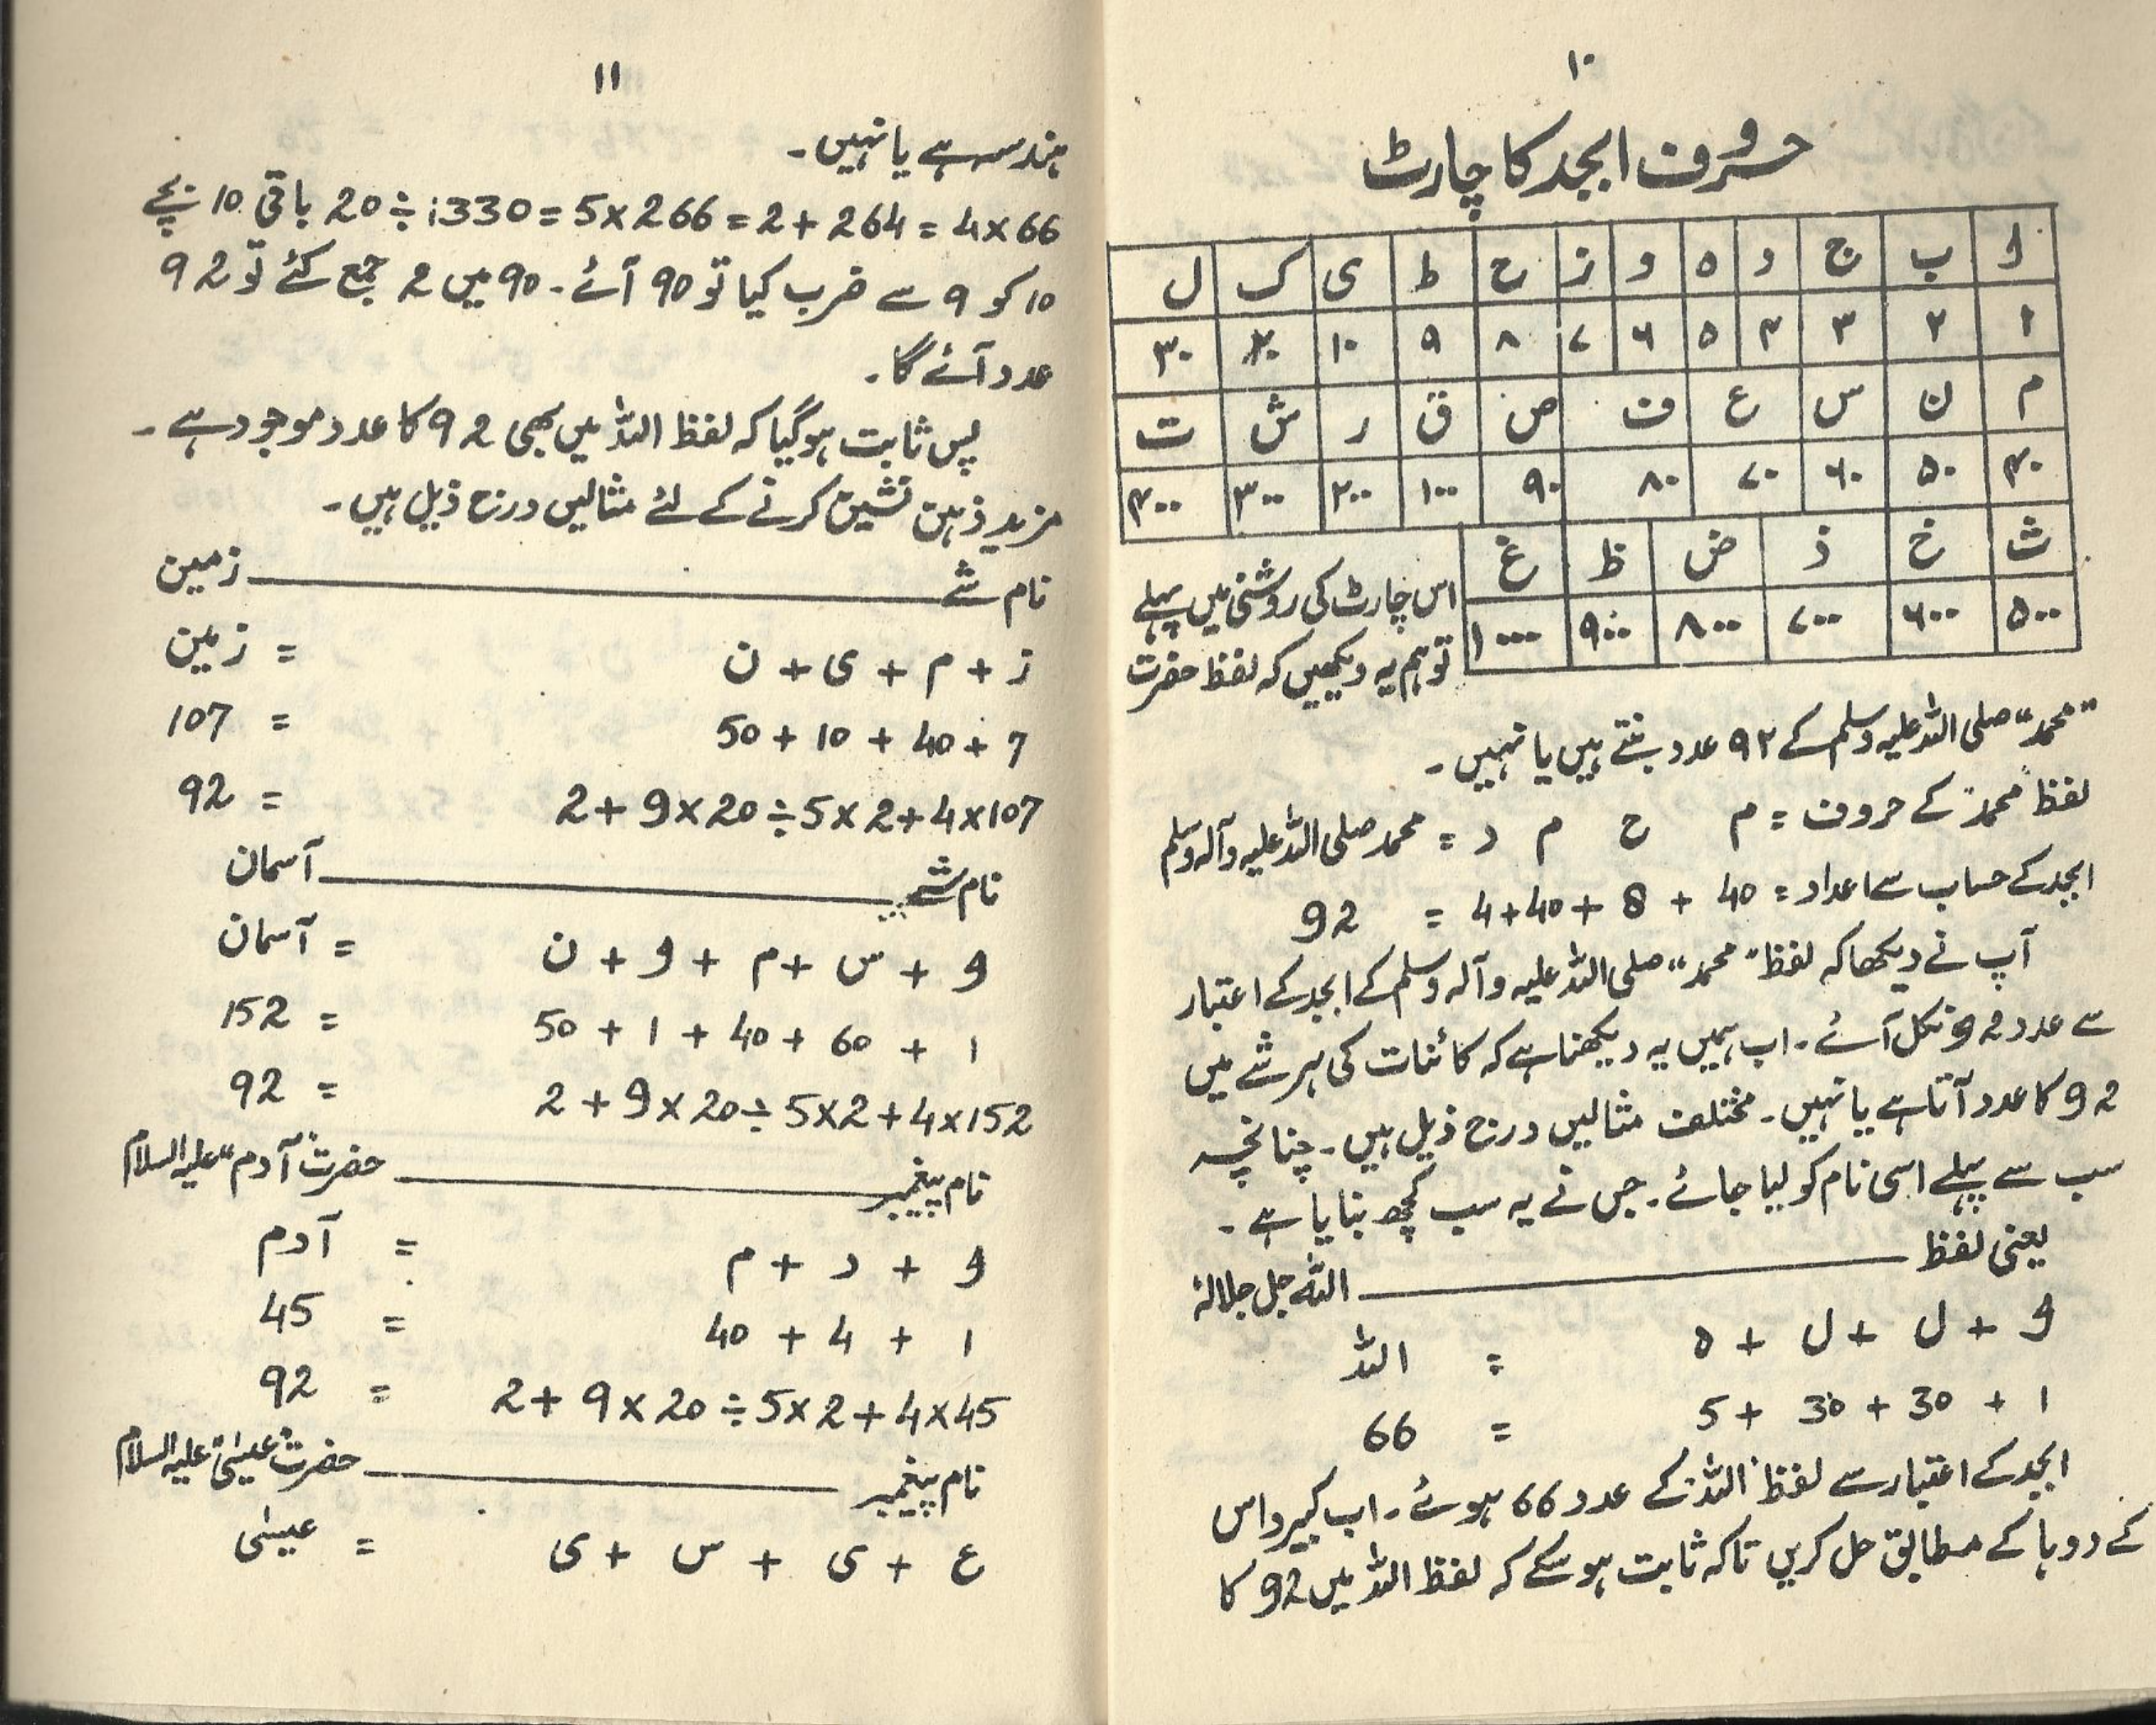 ۱۰
حروف ابجد کا چارٹ
ا ب ج د ہ و ز ح ط ی ک ل
۱ ۲ ۳ ۴ ۵ ۶ ۷ ۸ ۹ ۱۰ ۲۰ ۳۰
م ن س ع ف ص ق ر ش ت
۴۰ ۵۰ ۶۰ ۷۰ ۸۰ ۹۰ ۱۰۰ ۲۰۰ ۳۰۰ ۴۰۰
ث خ ذ ض ظ غ
۵۰۰ ۶۰۰ ۷۰۰ ۸۰۰ ۹۰۰ ۱۰۰۰
اس چارٹ کی روشنی میں پہلے
تو ہم یہ دیکھیں کہ لفظ حضرت
"محمد" صلی اللہ علیہ وسلم کے ۹۲ عدد بنتے ہیں یا نہیں۔
لفظ "محمد" کے حروف = م ح م د = محمد صلی اللہ علیہ وآلہ وسلم
ابجد کے حساب سے اعداد = 40 + 8 + 40 + 4 = 92
آپ نے دیکھا کہ لفظ "محمد" صلی اللہ علیہ وآلہ وسلم کے ابجد کے اعتبار
سے عدد 92 نکل آئے۔ اب ہمیں یہ دیکھنا ہے کہ کائنات کی ہر شے میں
92 کا عدد آتا ہے یا نہیں۔ مختلف مثالیں درج ذیل ہیں۔ چنانچہ
سب سے پہلے اسی نام کو لیا جائے۔ جس نے یہ سب کچھ بنایا ہے۔
یعنی لفظ ــــــــ اللہ جل جلالہٗ
ا + ل + ل + ہ = اللہ
1 + 30 + 30 + 5 = 66
ابجد کے اعتبار سے لفظ "اللہ" کے عدد 66 ہوئے۔ اب کبیر داس
کے دوہا کے مطابق حل کریں تاکہ ثابت ہو سکے کہ لفظ اللہ میں 92 کا
۱۱
ہندسہ ہے یا نہیں۔
66×4 = 264 +2 = 266×5 = 1330 ÷ 20 باقی 10 بچے
10 کو 9 سے ضرب کیا تو 90 آئے۔ 90 میں 2 جمع کئے تو 92
عدد آئے گا۔
پس ثابت ہو گیا کہ لفظ اللہ میں بھی 92 کا عدد موجود ہے۔
مزید ذہن نشین کرنے کے لئے مثالیں درج ذیل ہیں۔
نام شے ــــــــ زمین
ز + م + ی + ن = زمین
7 + 40 + 10 + 50 = 107
107×4 +2 ×5 ÷20 ×9 +2 = 92
نام شے ــــــــ آسمان
ا + س + م + ا + ن = آسمان
1 + 60 + 40 + 1 + 50 = 152
152×4 +2 ×5 ÷20 ×9 +2 = 92
نام پیغمبر ــــــــ حضرت "آدم" علیہ السلام
ا + د + م = آدم
1 + 4 + 40 = 45
45×4 +2 ×5 ÷20 ×9 +2 = 92
نام پیغمبر ــــــــ حضرت "عیسیٰ" علیہ السلام
ع + ی + س + ی = عیسیٰ